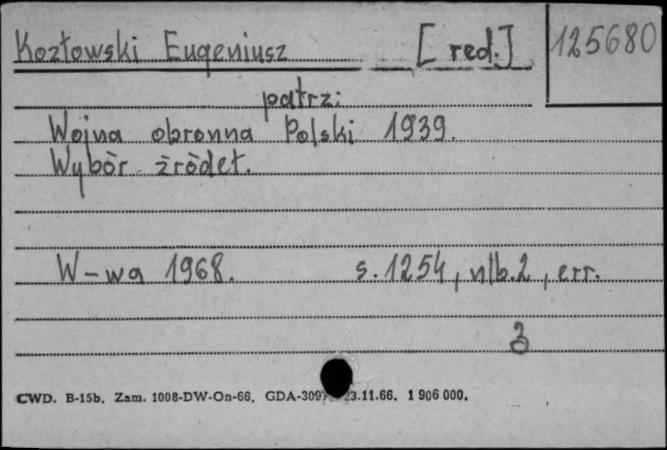 Kozłowski Eugeniusz [red.] 125680
patrz:
Wojna obronna Polski 1939.
Wybór źródeł.
W-wa 1968. s. 1254, nlb. 2, err.
3
CWD. B-15b. Zam. 1008-DW-On-66. GDA-309 23.11.66. 1 906 000.